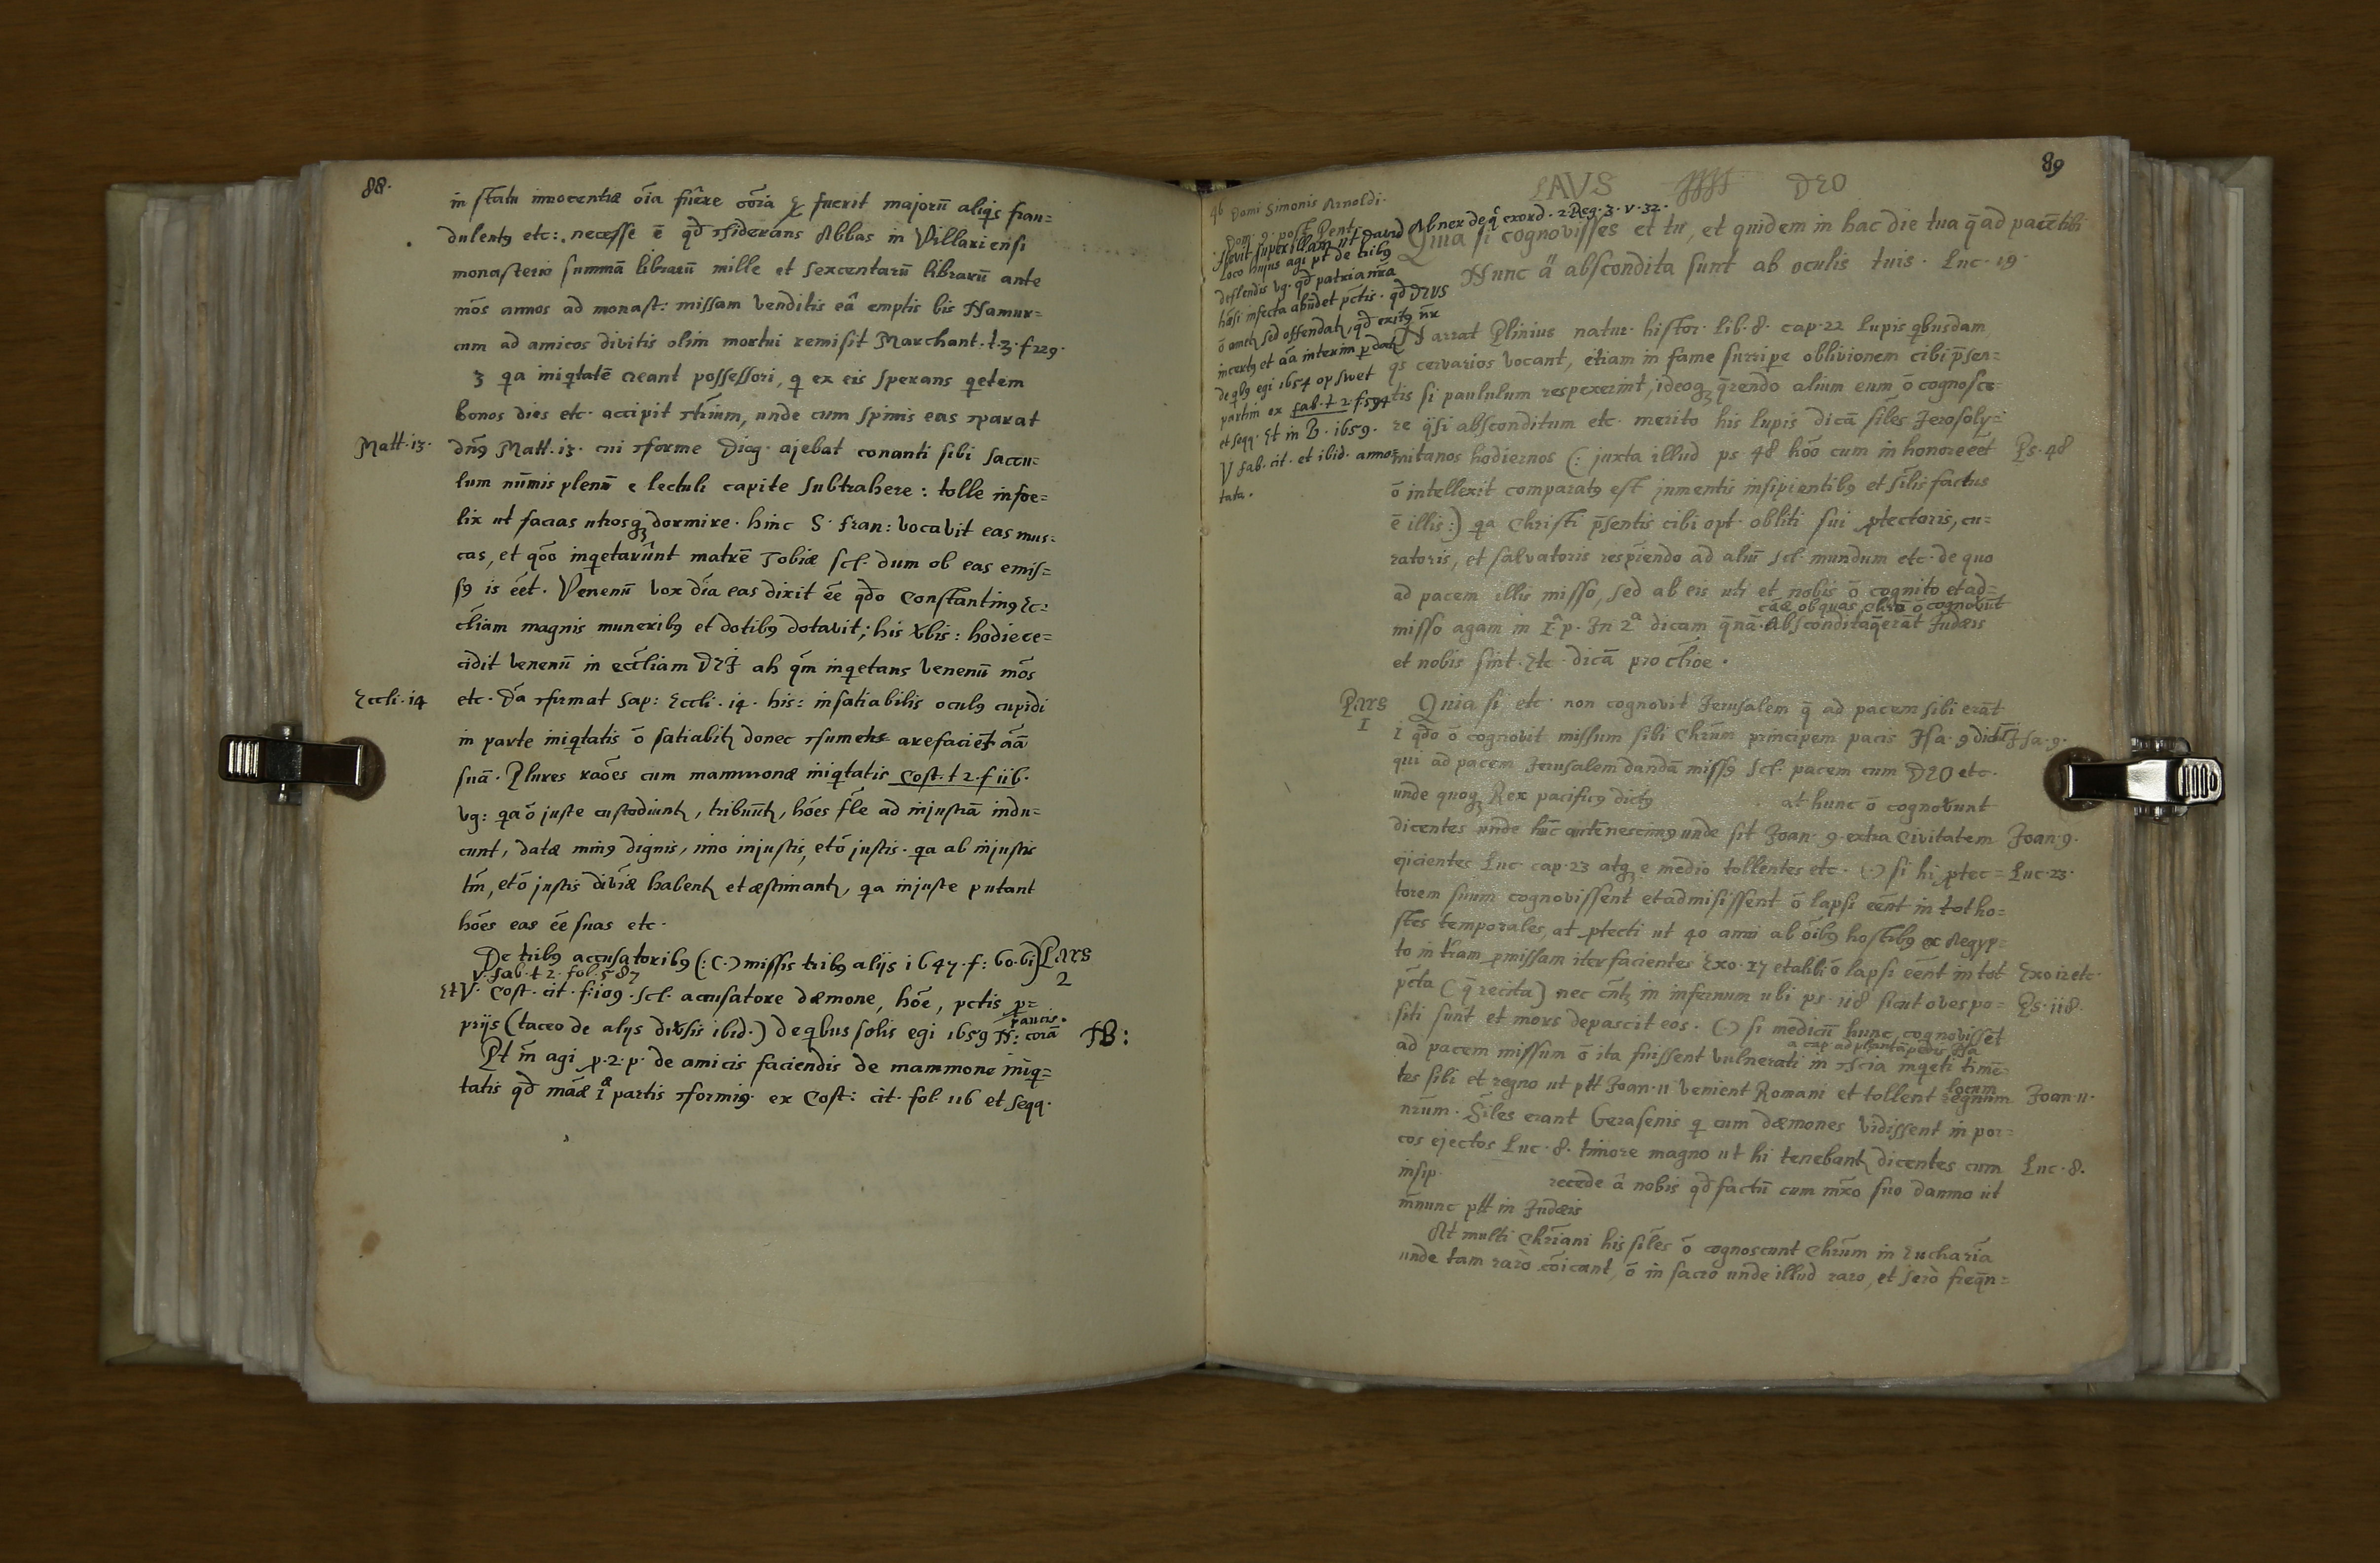 88.
in statu innocentiæ oĩa fuêre cõia & fuerit majorũ aliqs frau=
dulent9 etc: necesse ē qđ ɔsiderans Abbas in Villariensi
monasterio summā librarũ mille et sexcentarũ librarũ ante
mōs annos ad monast: missam venditis eâ emptis bis Namur=
cum ad amicos divitis olim mortui remisit Marchant. t. 3. f 229.
3 qa iniqtatē creant possessori, q ex eis sperans qetem
bonos dies etc. accipit ɔt̃ium, unde cum spinis eas ɔparat
Matt. 13. dñ9 Matt. 13. cui ɔforme Diog. ajebat conanti sibi saccu=
lum nũmis plenũ e lectuli capite subtrahere: tolle infoe=
lix ut facias utrosq dormire. hinc S. Fran: vocavit eas mus=
cas, et qōo inqetarûnt matrē Tobiæ scl. dum ob eas emis=
s9 is éet. Venenũ vox dĩa eas dixit ée qđo Constantin9 Ec=
clĩam magnis munerib9 et dotib9 dotavit; his vbis: hodie ce=
cidit venenũ in ecclĩam DEI ah qm̃ inqetans venenũ mōs
Eccli. 14 etc. Dā ɔfirmat Sap: Eccli. 14. his: insatiabilis ocul9 cupidi
in parte iniqtatis ō satiabit donec ɔsumens arefaciēt āā
suā. Plures raōes cum mammonæ iniqtatis Cost. t 2. f 116.
vg: qa ō juste custodiunt, tribuũt, hōes fl̃e ad injustiā indu=
cunt, datæ min9 dignis, imo injustis, et ō justis. qa ab injustis
tm̃, et ō justis divĩæ habent et æstimant, qa injuste putant
hōes eas ée suas etc.
De trib9 accusatorib9 (: (.) missis trib9 alijs 1647. f: 60. 61) Pars
2
V. Fab. t 2. fol. 587
Et V. Cost. cit. f: 109. scl. accusatore dæmone, hōe, pctis p=
prijs (taceo de alijs divsis ibid.) de qbus solis egi 1659 N: corā paucis. NB:
Pt m̃ agi p. 2. p. de amicis faciendis de mammone iniq=
tatis qđ māæ 1ᵃ partis ɔformi9. ex Cost: cit. fol 116 et seqq.
89
LAVS DEO
46 Domi Simonis Arnoldi.
Dom: 9. post Pent.
Flevit super illam ut David Abner de q̂ exord. 2. Reg. 3. v. 32.
Loco hujus agi pt de trib9
deflendis vg. qđ patria nr̃a
hæsi infecta abũdet pctis. qđ DEUS
ō amet sed offendat, qđ exit9 nr̃
incert9 et āā interim pdat
de qb9 egi 1654
partim ex Fab. t 2 f. 594
et seqq. Et in B. 1659.
V Fab. cit. et ibid. anno=
tata.
Quia si cognovisses et tu, et quidem in hac die tua q̄ ad pacē tibi
Nunc ā abscondita sunt ab oculis tuis. Luc. 19.
Narrat Plinius natur. histor. lib. 8. cap. 22 lupis qbusdam
qs cervarios vocant, etiam in fame surripe oblivionem cibi p̄sen=
tis si paululum respexerint, ideoq q̄rendo alium eum ō cognosce=
re q̄si absconditum etc. merito his lupis dicā siles Jerosoly=
mitanos hodiernos (: juxta illud ps. 48 hōo cum in honore éet Ps. 48
ō intellexit comparat9 est jumentis insipientib9 et silis factus
ē illis :) qa Christi p̄sentis cibi opt. obliti sui ptectoris, cu=
ratoris, et salvatoris respiendo ad aliũ scl. mundum etc. de quo
ad pacem illis misso, sed ab eis uti et nobis ō cognito et ad=
misso agam in 1ᵃ p. In 2ᵃ dicam q̄nā abscondita q̄ erāt Judæis
cāæ ob quas Chrm̃ ō cognovũt
et nobis sint. Etc. dicā pro clĩoe.
Pars
1
Quia si etc. non cognovit Jerusalem q̄ ad pacem sibi erāt
1 qđo ō cognovit missum sibi Chrm̃ principem pacis Isa. 9 dictũ Isa. 9.
qui ad pacem Jerusalem dandā miss9 scl. pacem cum DEO etc.
unde quoq Rex pacific9 dict9 at hunc ō cognovunt
dicentes unde hūc autē nescim9 unde sit Joan. 9 extra Civitatem Joan. 9.
ejicientes Luc. cap. 23 atq e medio tollentes etc. (.) si hi ptec= Luc. 23.
torem suum cognovissent et admisissent ō lapsi eént in tot ho=
stes temporales, at ptecti ut 40 anni ab ōib9 hostib9 ex Aegyp=
to in tr̃am pmissam iter facientes Exo. 27 et alibi ō lapsi eént in tot Exo 12 etc.
pcta (q̄ recita) nec in infernum ubi ps. 118 sicut oves po= Ps. 118.
siti sunt et mors depascit eos. (.) si medicũ hunc cognovissēt
ad pacem missum ō ita fuissent vulnerati in ɔscia inqeti timē=
a cap. ad plantā pedis Isa
tes sibi et regno ut ptt Joan. 11 venient Romani et tollent regnum locum Joan. 11.
nrũm. Siles erant Gerasenis q cum dæmones vidissent in por=
cos ejectos Luc. 8. timore magno ut hi tenebant dicentes cum Luc. 8.
insip. recede â nobis qđ factũ cum mxo suo damno ut
m̃nunc ptt in Judæis
At multi Chriani his siles ō cognoscunt Chrm̃ in Eucharĩa
unde tam rarò cōicant, ō in sacro unde illud raro, et serò freqn̄=